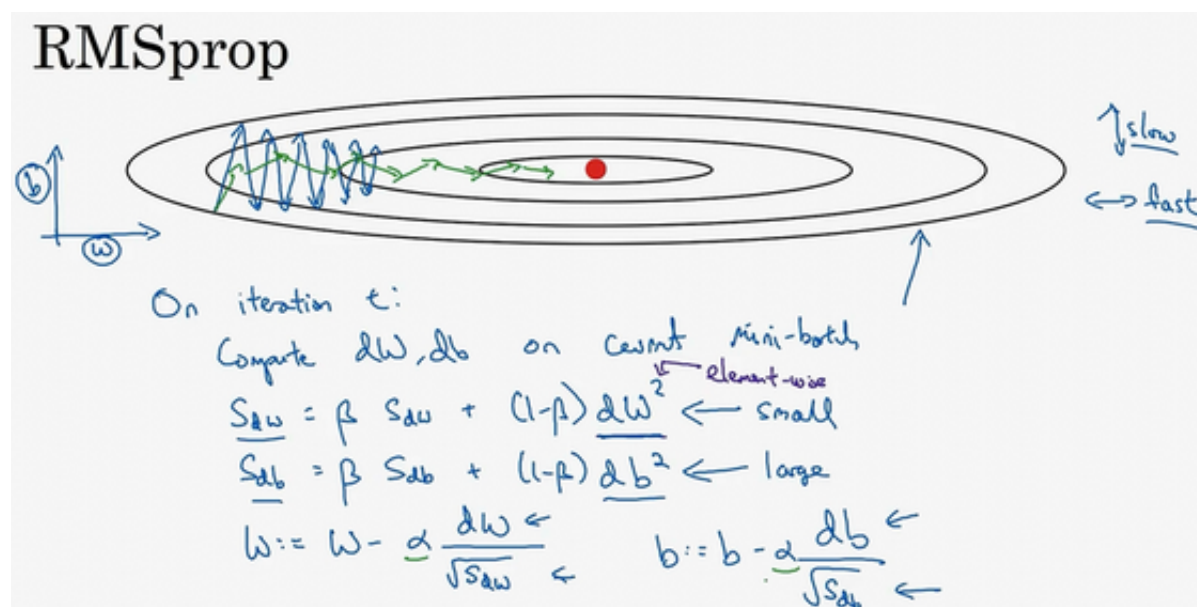 RMSprop
slow
b
fast
w
On iteration t:
Compute dW, db on current mini-batch
element-wise
Sdw = β Sdw + (1-β) dW² ← small
Sdb = β Sdb + (1-β) db² ← large
W := W - α dW/√Sdw    b := b - α db/√Sdb